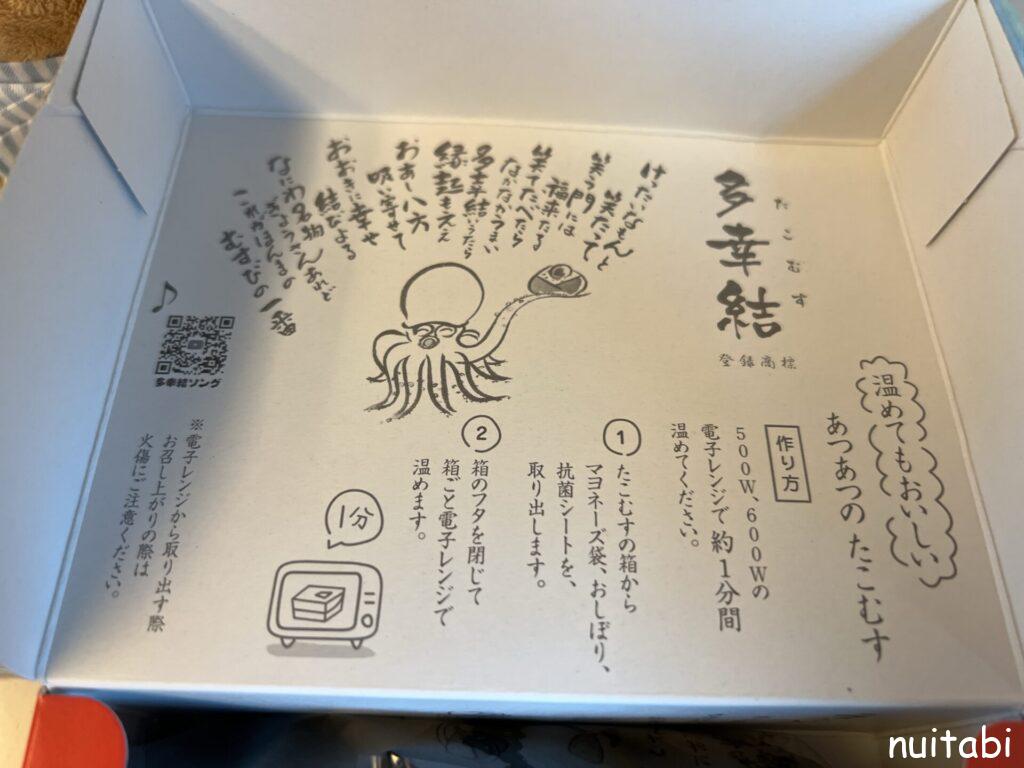 多幸結
たこむす
登録商標
けったいなもんと
笑たって
笑う門には
福来たる
笑てたべたら
なかなかうまい
多幸結いうたら
縁起もええ
おあー八方
吸い寄せて
おおきに幸せ
結びよる
なにわ名物
ぎょうさんあれど
これがほんまの
むすびの一番
温めてもおいしい
あつあつのたこむす
作り方
500W、600Wの
電子レンジで約1分間
温めてください。
1
たこむすの箱から
マヨネーズ袋、おしぼり、
抗菌シートを、
取り出します。
2
箱のフタを閉じて
箱ごと電子レンジで
温めます。
1分
多幸結ソング
※電子レンジから取り出す際
お召し上がりの際は
火傷にご注意ください。
nuitabi